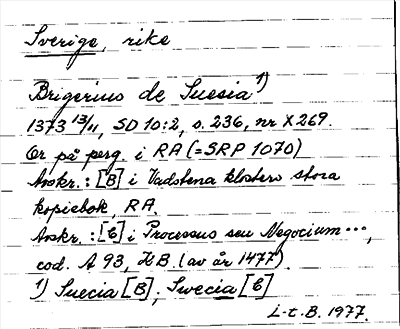 Sverige, rike
Brigerius de Suesia 1)
1373 13/11, SD 10:2, s. 236, nr X269.
Or på perg. i RA (=SRP 1070)
Avskr.: [B] i Vadstena klosters stora
kopiebok, RA
Avskr. : [C] i Processus seu Negocium...,
cod. A 93, KB. (av år 1477)
1) Suecia [B]; Swecia [C]
L-t. B. 1977.